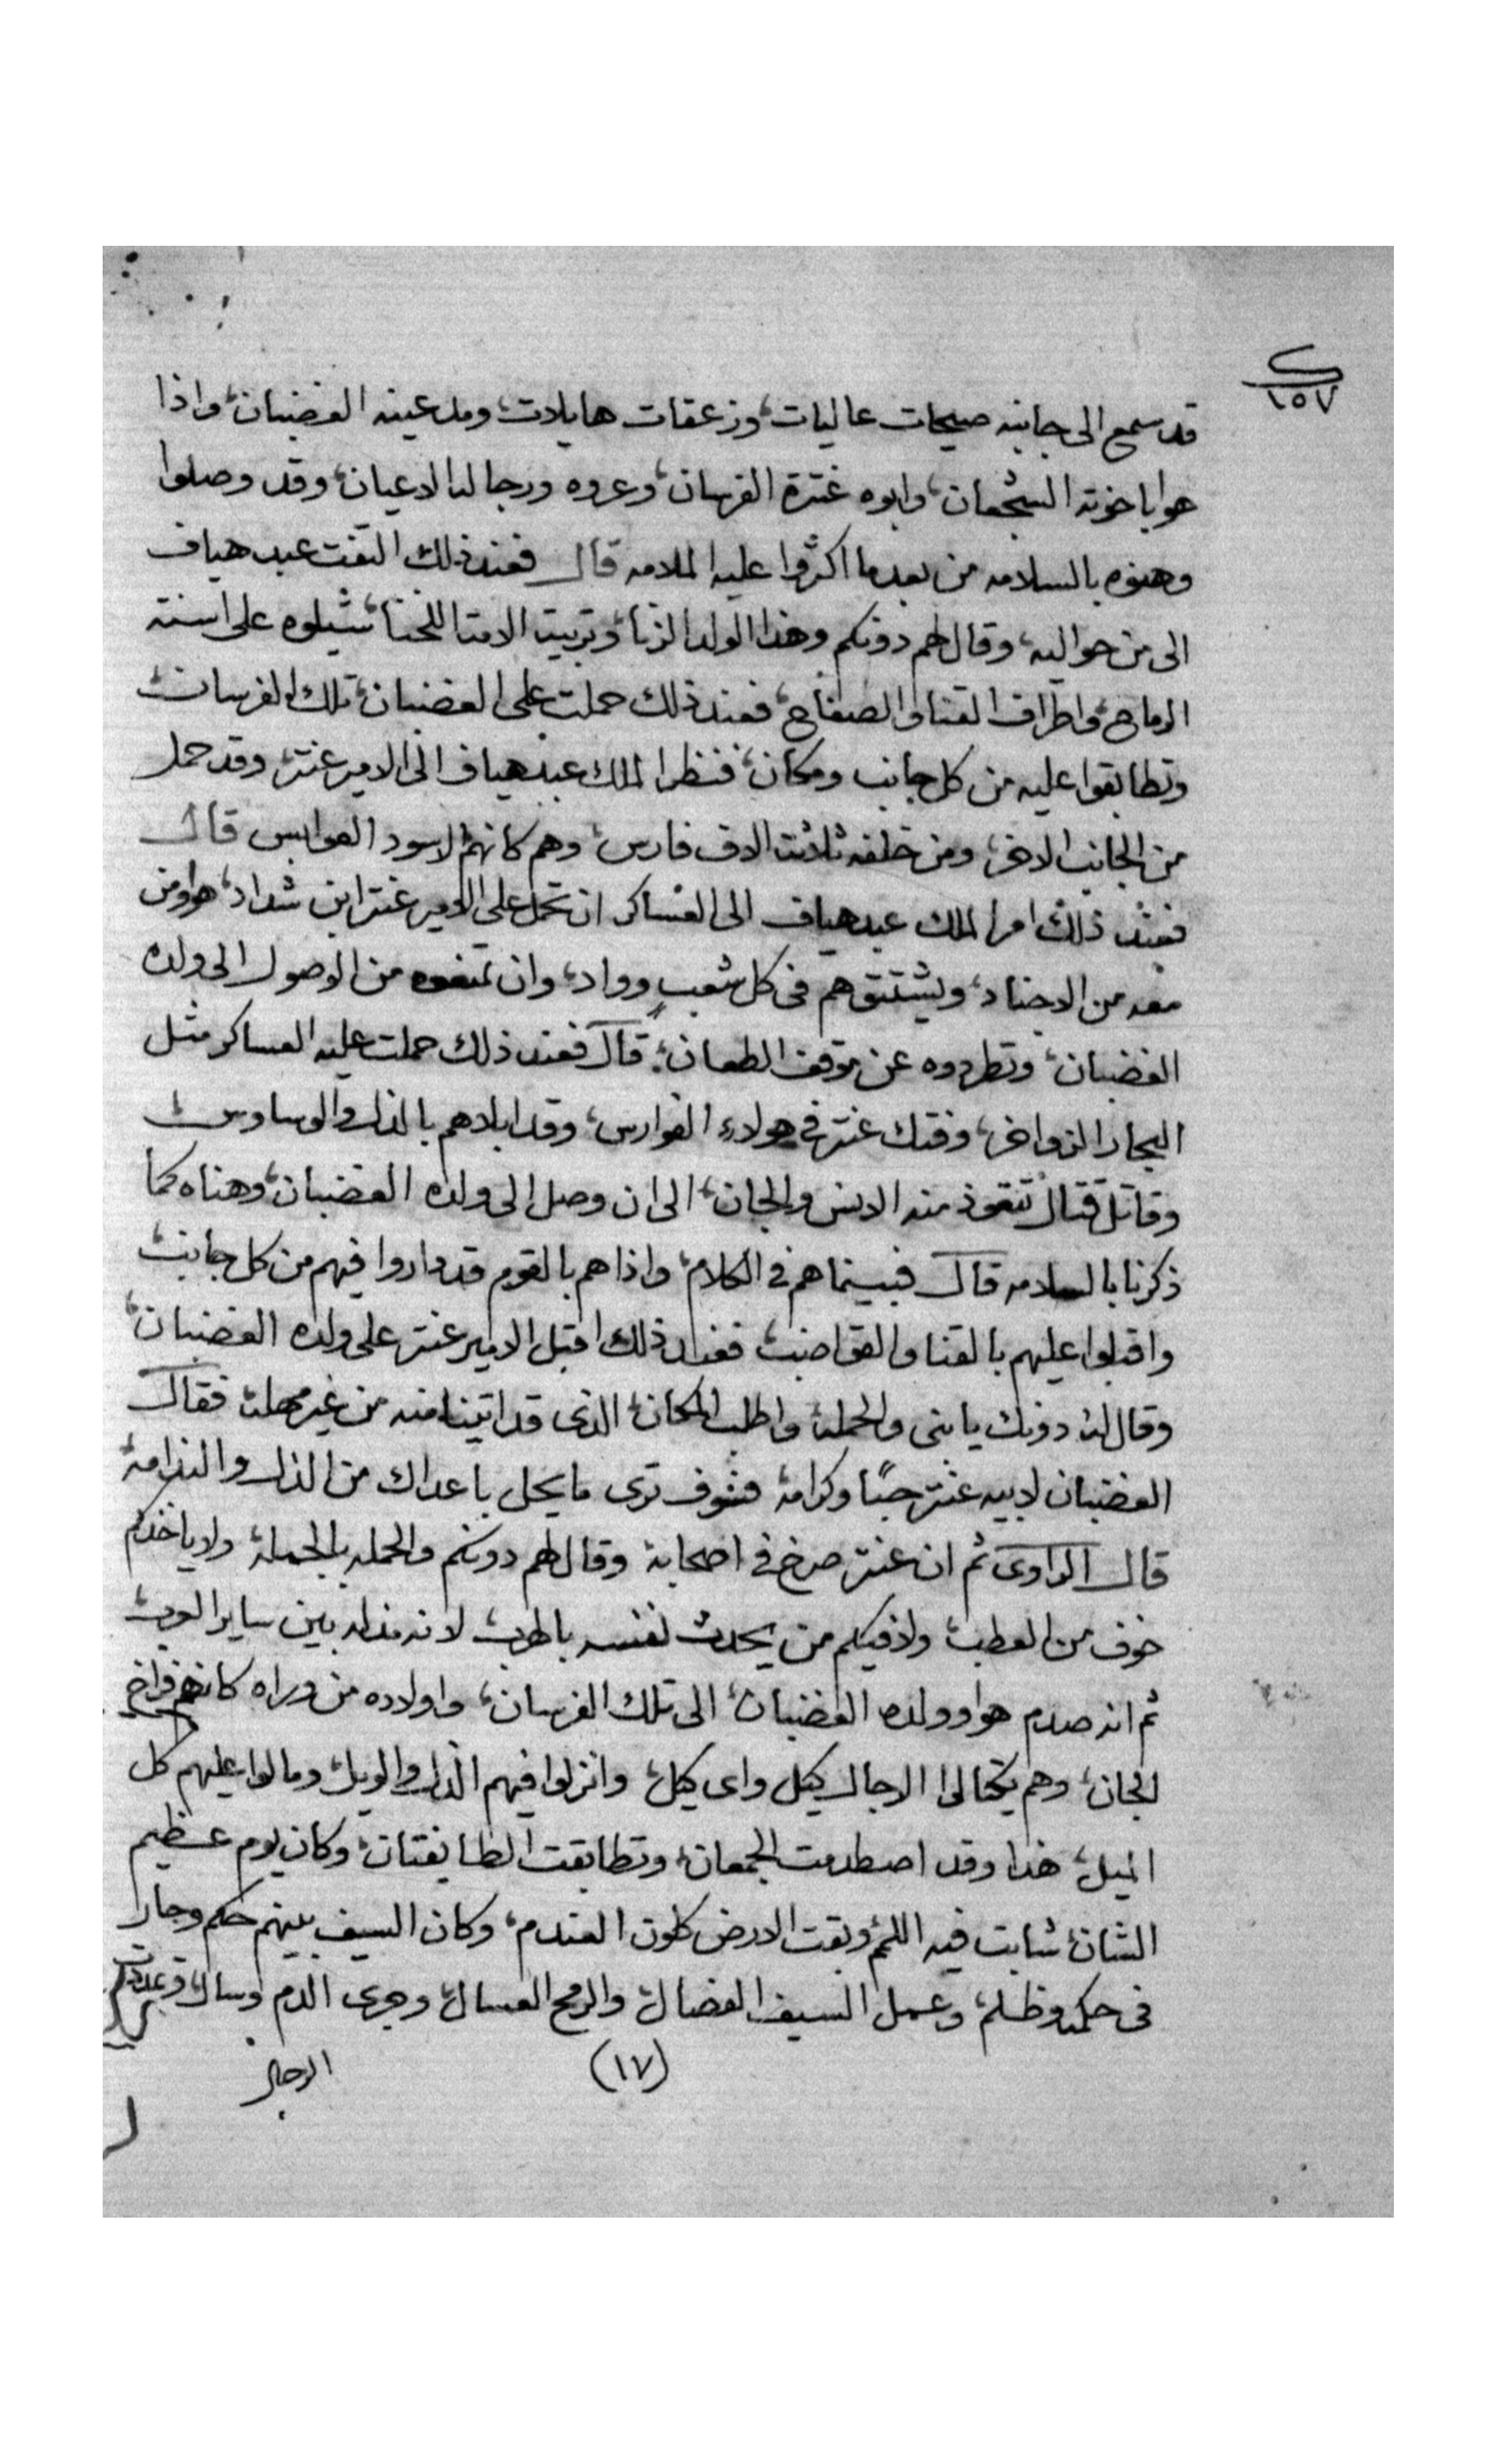 ١٥٧
قد سمع الى جانبه صيحات عاليات، وزعقات هايلات، ومد عينه الغضبان، واذا
هو باخوته الشجعان، وابوه عنترة الفرسان، وعروه ورجاله الاعيان، وقد وصلوا
وهنوه بالسلامه من بعد ما اكثروا عليه الملامه قال فعند ذلك التفت عبد هياف
الى من حواليه، وقال لهم دونكم وهذا الولد الزنا، وتربيت الامتا اللخنا، شيلوه على اسنته
الرماح، واطراف القنا والصفاح، فعند ذلك حملت على الغضبان، تلك الفرسان
وتطابقوا عليه من كل جانب ومكان، فنظر الملك عبد هياف الى الامير عنتر، وقد حمل
من الجانب الاخر، ومن خلفه ثلاثت الاف فارس، وهم كانهم الاسود العوابس قال
فعند ذلك امر الملك عبد هياف الى العساكر ان تحمل على الامير عنتر ابن شداد، هو ومن
معه من الاجناد، ويشتتوهم فى كل شعب وواد، وان تمنعوه من الوصول الى ولده
الغضبان، وتطردوه عن موقف الطعان، قال فعند ذلك حملت عليه العساكر مثل
البحار الزواخر، وفتك عنتر فى هولاء الفوارس، وقد ابلاهم بالذل والوساوس
وقاتل قتال تتعوذ منه الانس والجان، الى ان وصل الى ولده الغضبان، وهناه كما
ذكرنا بالسلامه قال فبينما هم فى الكلام، واذا هم بالقوم قد داروا فيهم من كل جانب
واقبلوا عليهم بالقنا والقواضب، فعند ذلك اقبل الامير عنتر على ولده الغضبان،
وقال له دونك يا بنى والحمله واطلب المكان، الذى قد اتينا منه من غير مهله فقال
الغضبان لابيه عنتر حبًا وكرامة فسوف ترى ما يحل باعداك من الذل والندامة
قال الراوى ثم ان عنتر صرخ فى اصحابه وقال لهم دونكم والحمله بالجملة ولا ياخذكم
خوف من العطب، ولا فيكم من يحدث نفسه بالهرب لانه مذله بين ساير العرب
ثم انه صدم هو وولده الغضبان، الى تلك الفرسان، واولاده من وراه كانهم فراخ
الجان، وهم يكتالوا الاجال كيل واى كيل، وانزلوا فيهم الذل والويل، ومالوا عليهم كل
الميل، هذا وقد اصطدمت الجمعان، وتطابقت الطايفتان، وكان يوم عظيم
الشان، شابت فيه اللمم وبقت الارض كلون العندم، وكان السيف بينهم حكم وجار
فى حكمه وظلم، وعمل السيف الفصال، والرمح العسال، وجرى الدم وسال،
(١٧)
الرجال